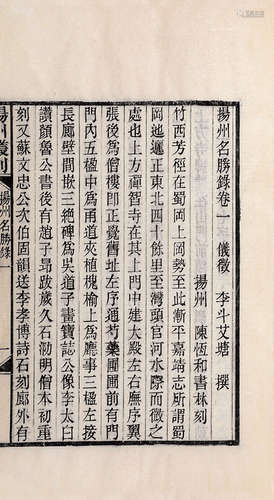 揚州名勝錄卷一
儀徵 李斗艾塘 撰
揚州 陳恆和書林刻
竹西芳徑在蜀岡上岡勢至此漸平嘉靖志所謂蜀
岡迤邐正東北四十餘里至灣頭官河水際而微之
處也上方禪智寺在其上門中建大殿左右廡序翼
張後為僧樓即正覺舊址左序通芍藥圃圃前有門
門內五楹中為甬道夾植槐榆上為廳事三楹左接
長廊壁間嵌三絕碑為吳道子畫寶誌公像李太白
讚顏魯公書後有趙子昂跋歲久石泐明僧本初重
刻又蘇文忠公次伯固韻送李孝博詩石刻廊外有
揚州叢刻
揚州名勝錄
一